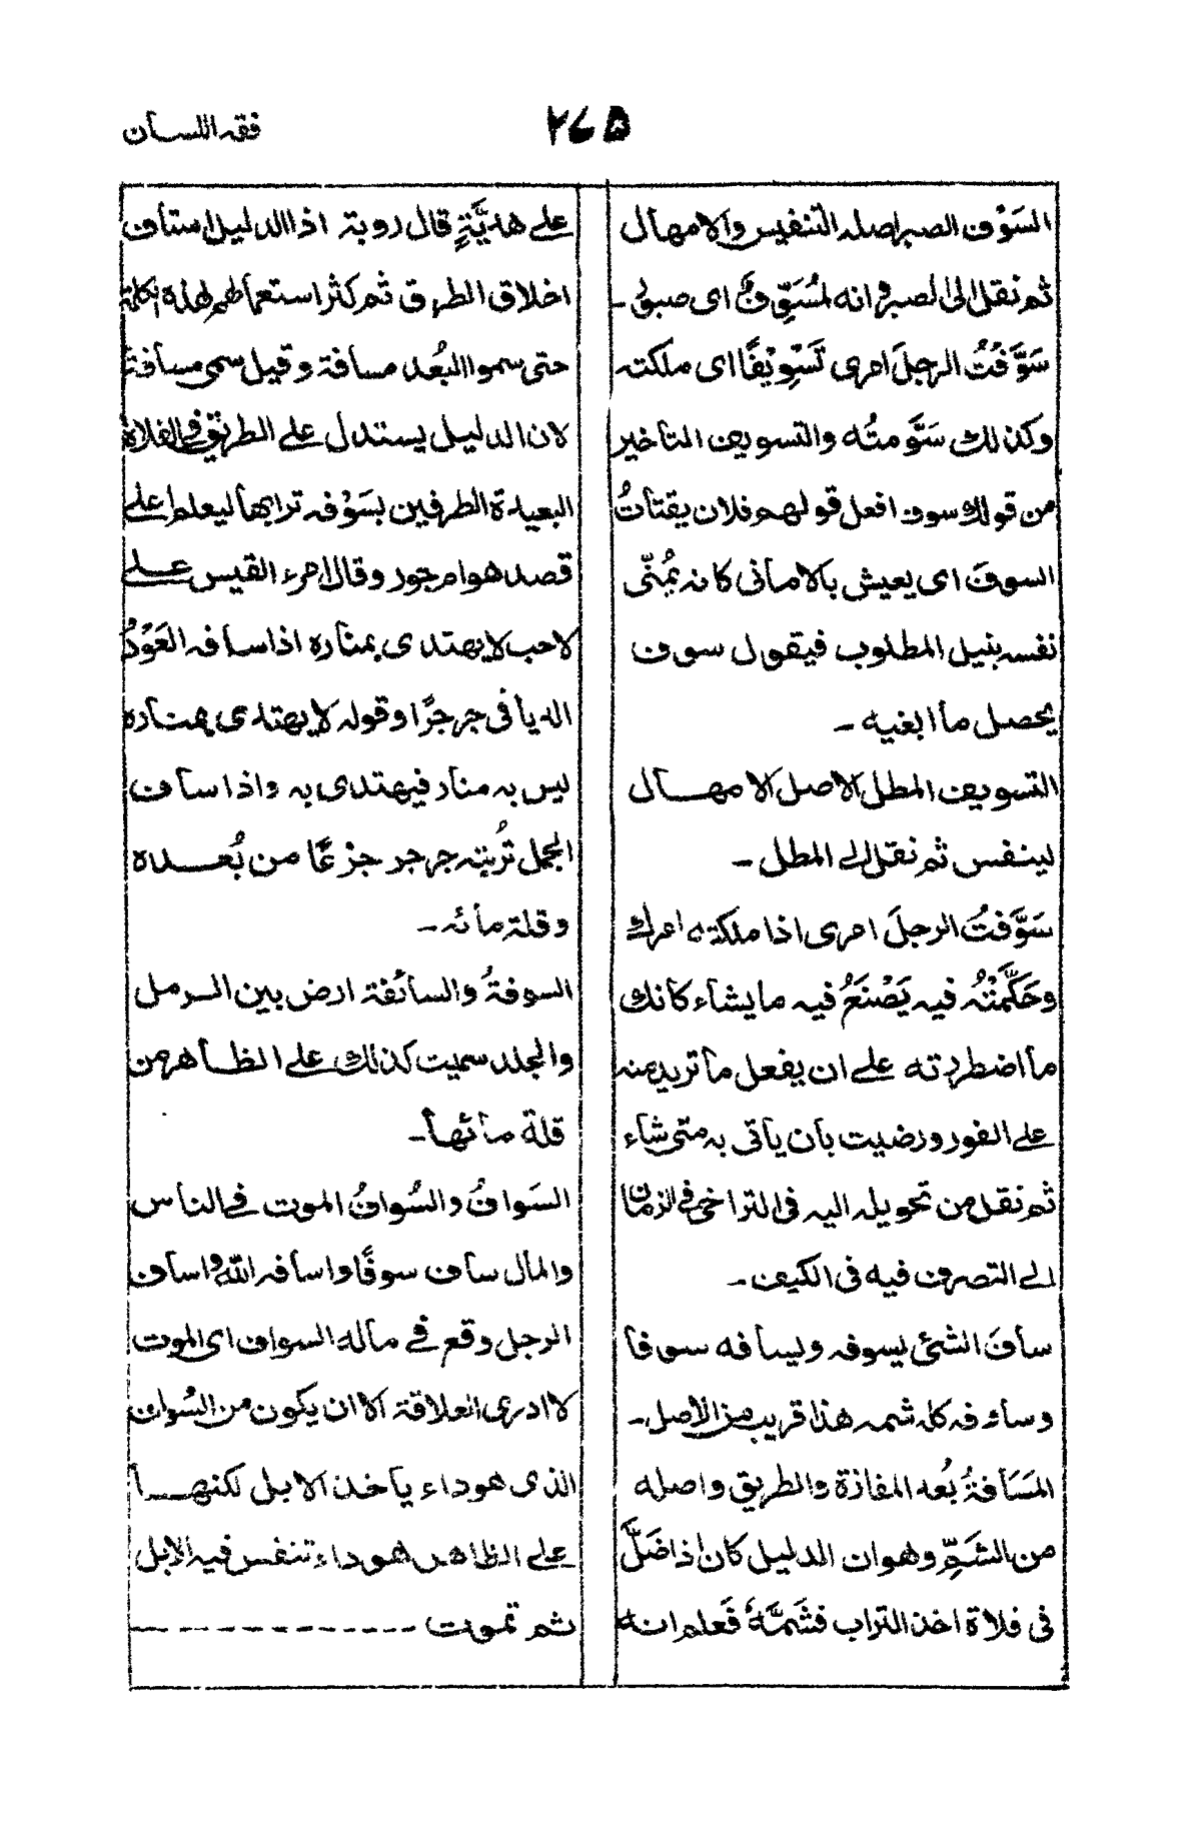 فقہ اللسان
۲۷۵
السَوْف الصبر اصله التنفیس والامهال
ثم نقل الی الصبر و انه لمُسَوِّفٌ ای صبور ـ
سَوَّفتُ الرجلَ امری تَسْوِیْفًا ای ملکته
وکذلك سَوَّمتُه والتسویف التاخیر
من قولك سوف افعل قولهم فلان یقتاتُ
السوفَ ای یعیش بالامانی کانه یُمَنّی
نفسه بنیل المطلوب فیقول سوف
یحصل ما ابغیه ـ
التسویف المطل الاصل الامهال
لینفس ثم نقل الی المطل ـ
سَوَّفتُ الرجلَ امری اذا ملکته امرك
وحَکَّمْتُه فیه یَصْنَعُ فیه ما یشاء کانك
ما اضطردته علی ان یفعل ما ترید منه
علی الفور ورضیت بان یأتی به متی شاء
ثم نقل من تحویله الیه فی التراخی فی الزمان
الی التصرف فیه فی الکیف ـ
سافَ الشئ یسوفه ویسافه سوفا
وساوفه کله شمه هذا قریب من الاصل ـ
المَسَافةُ بُعد المفازة والطریق واصله
من الشَمِّ وهو ان الدلیل کان اذا ضَلَّ
فی فلاة اخذ التراب فشَمَّهٗ فَعلم انه
علی هدیَّةٍ قال روبة اذا الدلیل استاف
اخلاق الطرق ثم کثر استعمالهم لهذه الکلمة
حتی سموا البُعد مسافة وقیل سمی مسافة
لان الدلیل یستدل علی الطریق فی الفلاة
البعیدة الطرفین بسَوْفه ترابها لیعلم اعلی
قصد هو ام جور وقال امرء القیس علی
لاحب لا یهتدی بمناره اذا سافه العَوْدُ
الدیافی جرجرًا وقوله لا یهتدی بمناره
لیس به منار فیهتدی به واذا ساف
الجمل تُربته جرجر جزعًا من بُعده
وقلة مائه ـ
السوفةُ والسائفة ارض بین الرمل
والجلد سمیت کذلك علی الظاهر من
قلة مائها ـ
السَوافُ والسُوافُ الموت فی الناس
والمال ساف سوفًا واسافه اللّه واساف
الرجل وقع فی ماله السواف ای الموت
لا ادری العلاقة الا ان یکون من السُواف
الذی هو داء یاخذ الابل لکنها
علی الظاهر هو داء تنفس فیه الابل
ثم تموت ـ ـ ـ ـ ـ ـ ـ ـ ـ ـ ـ ـ